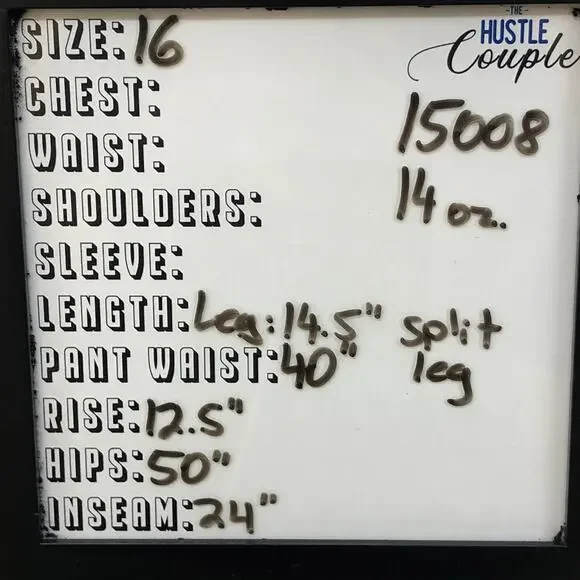 SIZE: 16
THE
HUSTLE
Couple
CHEST:
15008
WAIST:
14 oz.
SHOULDERS:
SLEEVE:
LENGTH: Leg: 14.5" split
PANT WAIST: 40" leg
RISE: 12.5"
HIPS: 50"
INSEAM: 24"